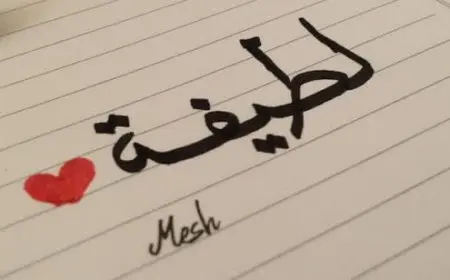 لطيفة
Mesh